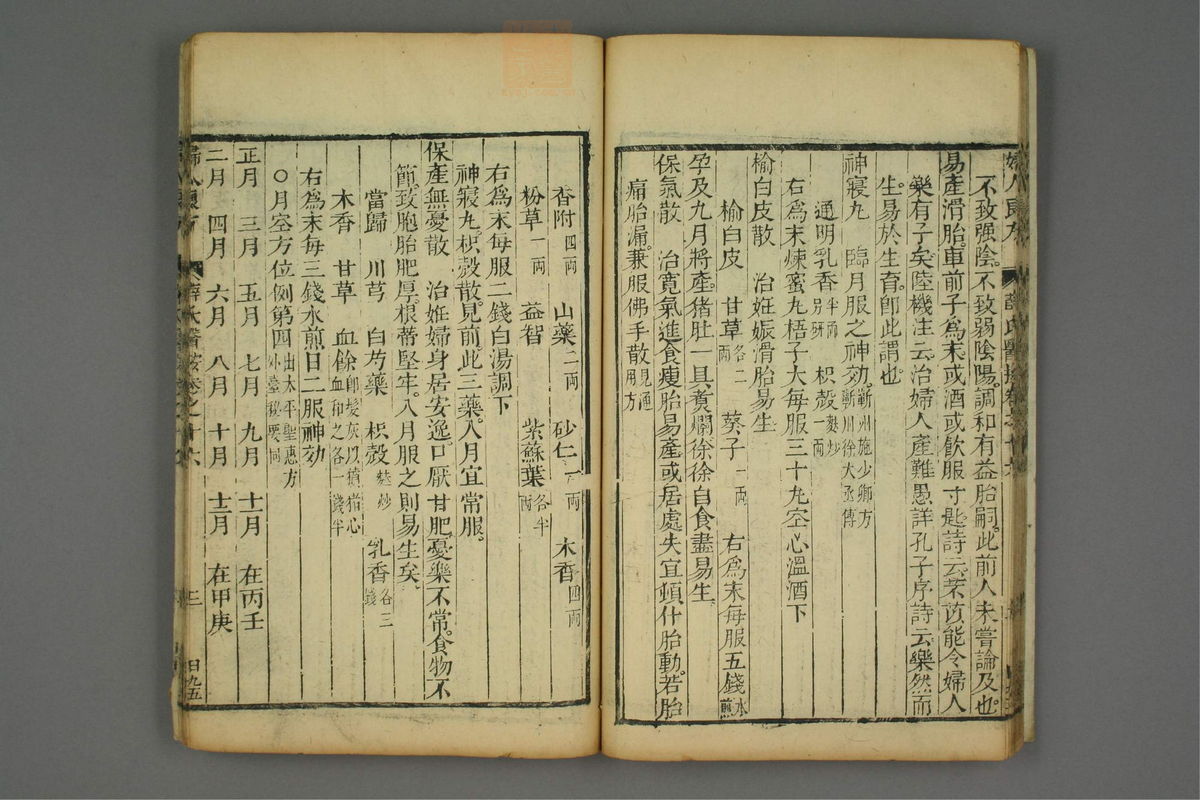 不致强陰。不致弱陰陽。調和有益胎嗣。此前人未嘗論及也。
易產滑胎。車前子爲末。或酒或飲服寸匙。詩云。芣苢能令婦人
樂有子矣。陸機注云。治婦人產難。愚詳孔子序詩云。樂然而
生。易於生育。卽此謂也。
神寢丸 臨月服之神効。蘄州施少卿方
蘄州徐太丞傳
通明乳香半兩別硏 枳殻一兩麩炒
右爲末。煉蜜丸梧子大。每服三十丸。空心溫酒下
榆白皮散 治妊娠滑胎易生
榆白皮 甘草各二兩 葵子一兩 右爲末每服五錢水煎
孕及九月將產。猪肚一具。煑爛徐徐自食盡易生
保氣散 治寬氣進食。瘦胎易產。或居處失宜。頓什胎動。若胎
痛胎漏。兼服佛手散見通用方
香附四兩 山藥二兩 砂仁一兩 木香四兩
粉草一兩 益智 紫蘇葉各半兩
右爲末。每服二錢。白湯調下
神寢丸。枳殻散。見前。此三藥。八月宜常服。
保產無憂散 治妊婦身居安逸。口厭甘肥。憂樂不常。食物不
節。致胞胎肥厚。根蒂堅牢。八月服之。則易生矣。
當歸 川芎 白芍藥 枳殻麩炒 乳香各三錢
木香 甘草 血餘卽髮灰以豶猪心
血和之各一錢半
右爲末。每三錢水煎。日二服神効
〇月空方位例第四出太平聖惠方
外臺祕要同
正月 三月 五月 七月 九月 十一月 在丙壬
二月 四月 六月 八月 十月 十二月 在甲庚